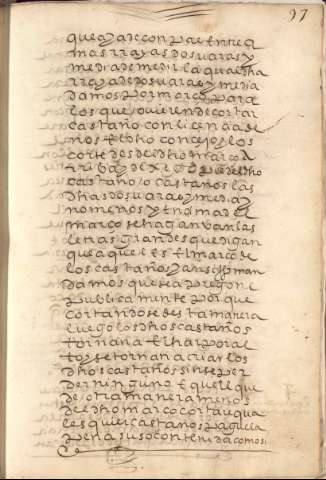 97
que aya de con que entre
mas rrayas dos varas y
media de medir la qual dha
rraya de dos varas y media
damos por marco para
los que ovieren de cortar
castaño con licençia de
nos el dho concejo y los
corte desde el dho marco a
rriba y dexe
castaño o castaños las
dhas dos varas y media y
no menos y en
marco se hagan unas
letras grandes que digan
que aquel es el marco de
los castaños y ansi man
damos que sea pregone
publicamente porque
cortandose desta manera
luego los dhos castaños
tornan a echar por al
to y se tornan a criar los
dhos castaños sin se per
der ninguno e quel que
de otra manera menos
de el dho marco cortare qua
les quier castaños pague la
pena suso contenida como si